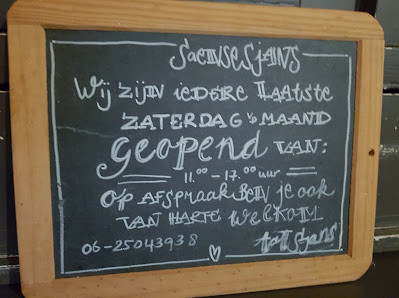 SaenseSjANS
Wij zijn iedere laatste
ZATERDAG v/d MAAND
geopend VAN:
11.00 - 17.00 uur
Op AFSPRAAK BEN je ook
VAN HARTE WELKOM
06-25043938